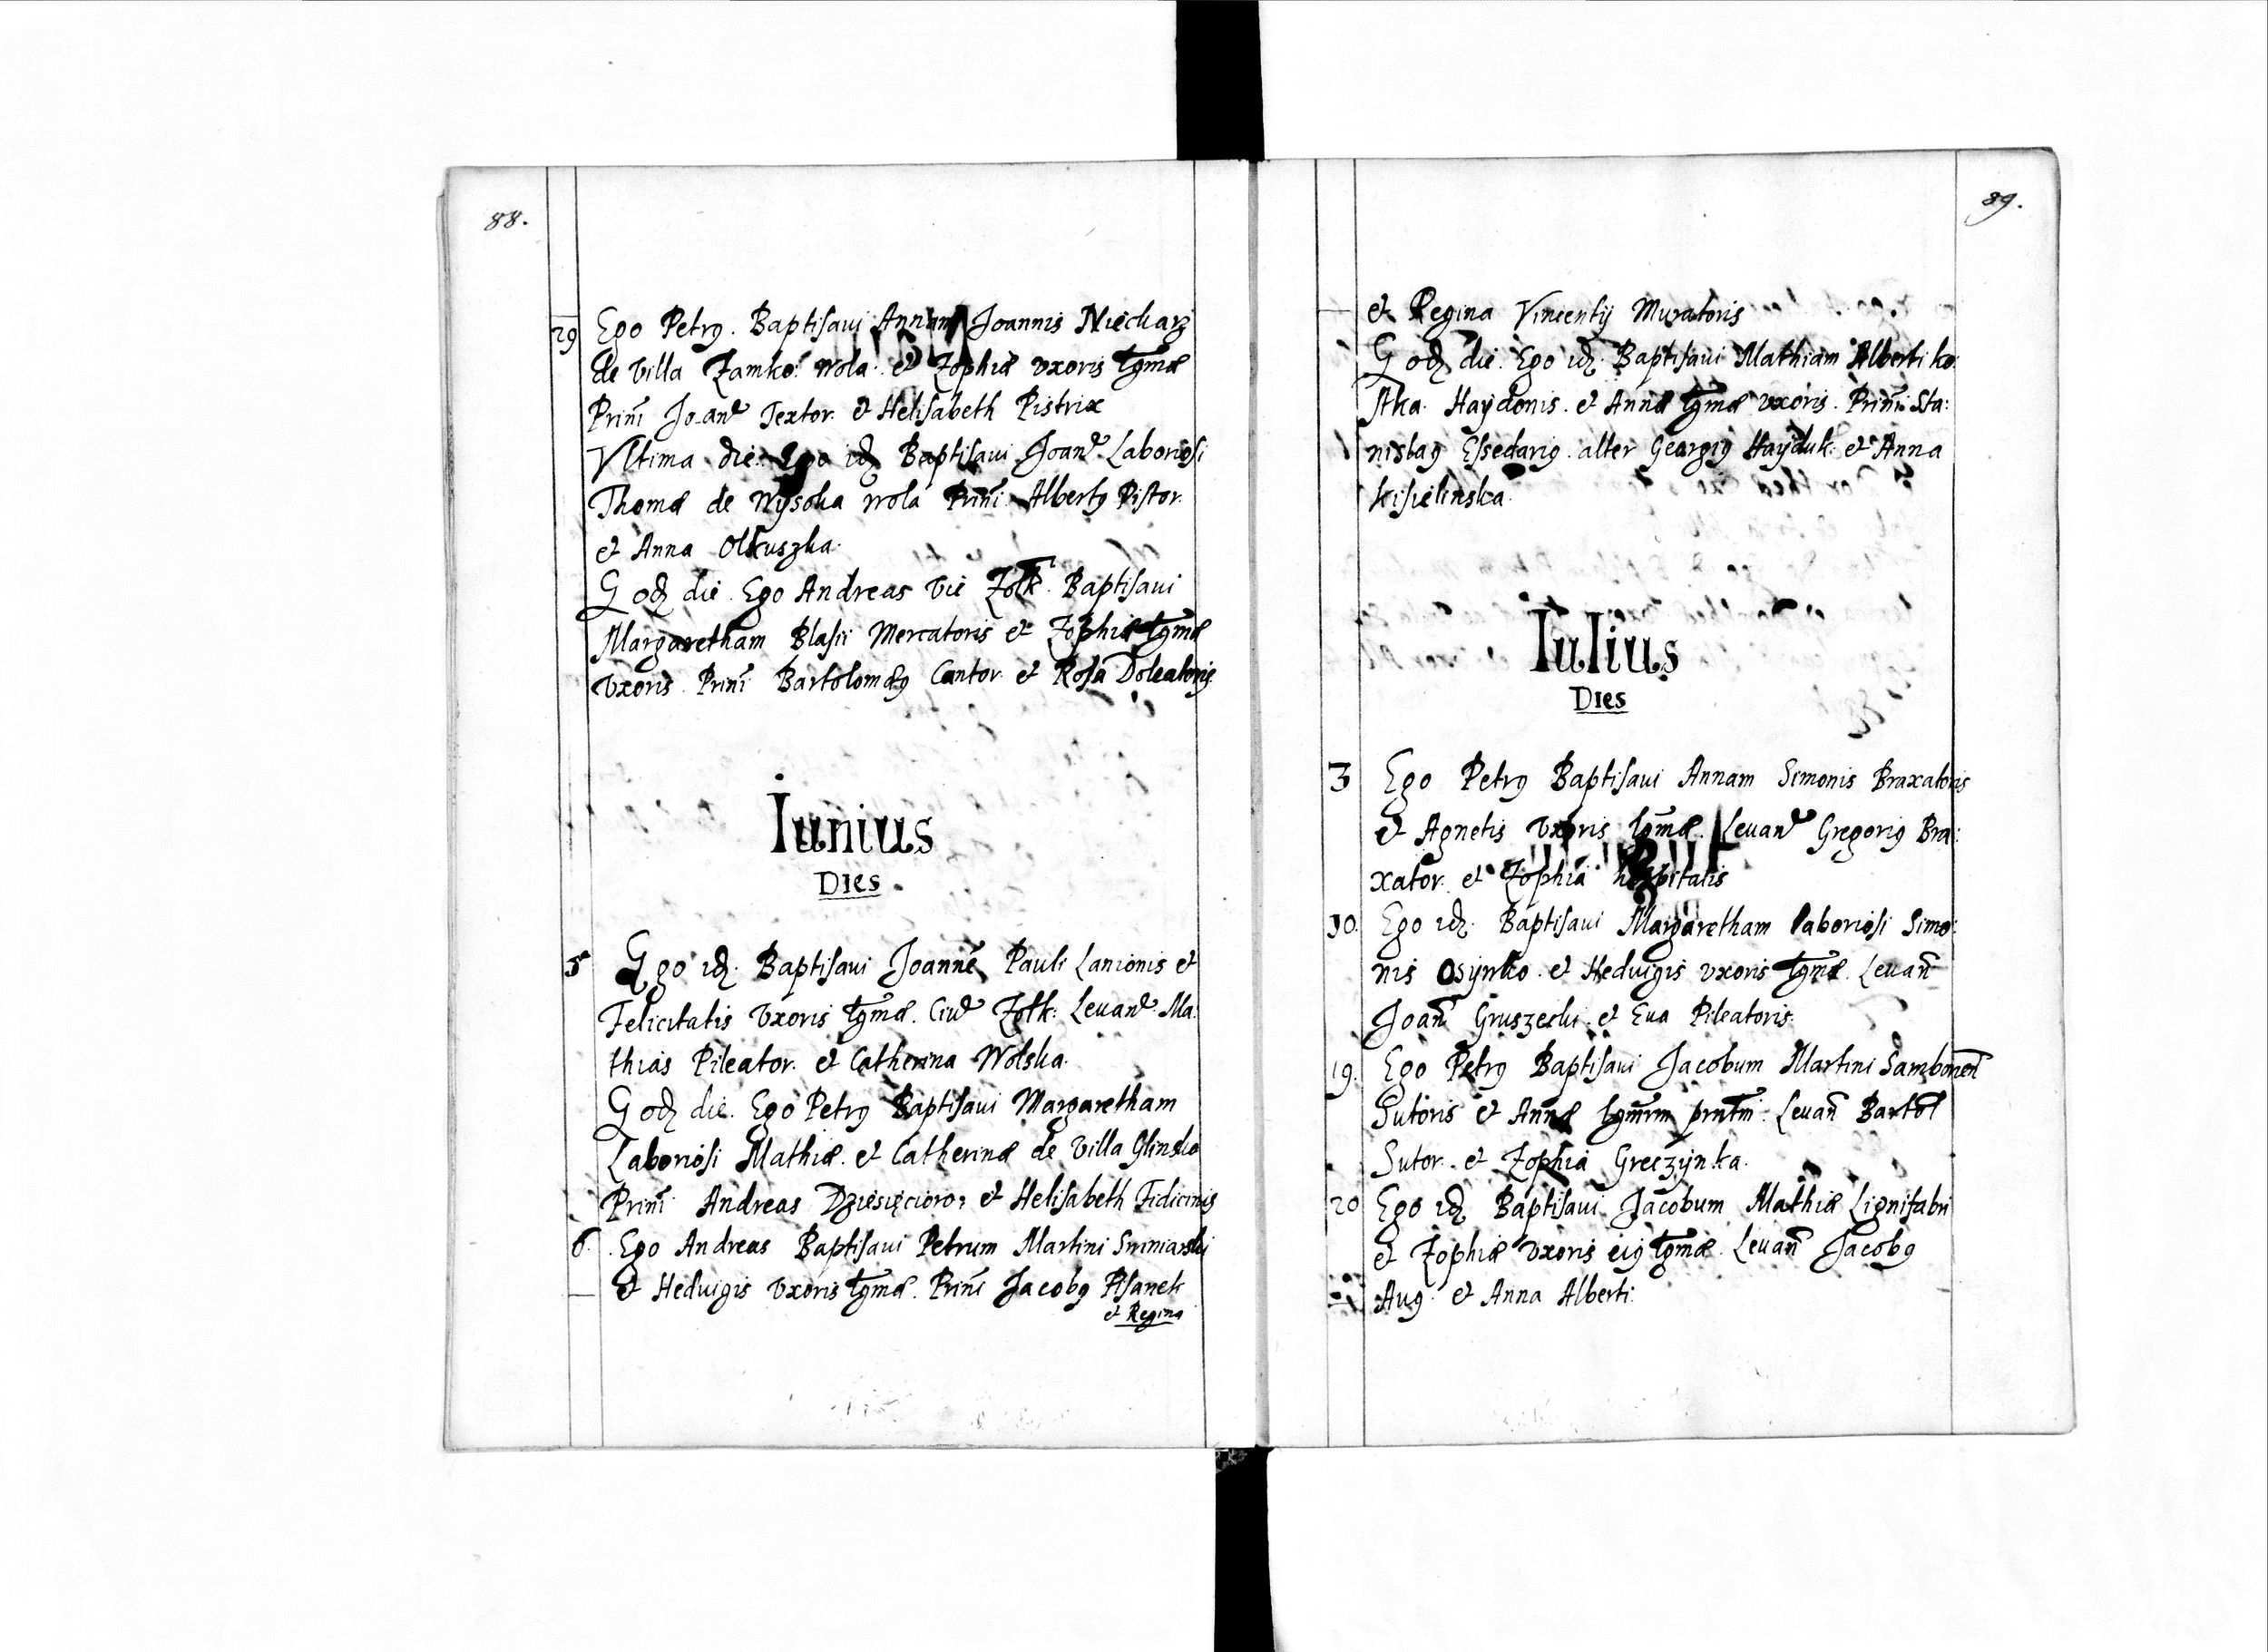 88.
29 Ego Petrꝰ. Baptisaui Annam Joannis Niecharz
de villa Zamko: wola. et Zophiæ vxoris lgmæ
Prim̃ Joañe Textor. et Helisabeth Pistrix
Vltima die. Ego idẽ Baptisaui Joañe Laboriosi
Thomæ de Wysoka wola Prim̃i Albertꝰ Pistor.
et Anna Olkuszka.
Eodẽ die. Ego Andreas vic Zolk. Baptisaui
Margaretham Blasii Mercatoris et Zophiæ lgmæ
vxoris. Prim̃i Bartolomæꝰ Cantor. et Rosa Doleatoris
Iunius
Dies
5 Ego idẽ. Baptisaui Joannẽ Pauli Lanionis et
Felicitatis vxoris lgmæ. Ciuẽ Zolk: Leuanẽ Ma:
thias Pileator. et Catherina Wolska.
Eodẽ die. Ego Petrꝰ Baptisaui Margaretham
Laboriosi Mathiæ. et Catherinæ de villa Glinsko
Prim̃i Andreas Dziesięcioro: et Helisabeth Fidicinis
6. Ego Andreas Baptisaui Petrum Martini Sminiarski
et Hedvigis vxoris lgmæ. Prim̃i Jacobꝰ Pisanek
et Regina
89.
et Regina Vincentij Muratoris
Eodẽ die. Ego idẽ. Baptisaui Mathiam Alberti ko:
stka. Haydonis. et Annæ lgmæ vxoris. Prim̃i Sta:
nislaꝰ Essedariꝰ. alter Georgiꝰ Hayduk: et Anna
kisielinska.
Iulius
Dies
3 Ego Petrꝰ Baptisaui Annam Simonis Braxatoris
et Agnetis vxoris lgmæ. Leuanẽ Gregoriꝰ Bra:
xator. et Zophia hospitalis
10. Ego idẽ. Baptisaui Margaretham laboriosi Simo:
nis Osynko. et Hedvigis vxoris lgmæ. Leuañ
Joañ Gruszecki. et Eua Pileatoris.
19. Ego Petrꝰ Baptisaui Jacobum Martini Samborieñ
Sutoris et Annæ lgmrm prntm̃. Leuañ Bartol
Sutor. et Zophia Greczynka.
20 Ego idẽ Baptisaui Jacobum Mathiæ Lignifabri
et Zophiæ vxoris eiꝰ lgmæ. Leuañ Jacobꝰ
Augꝰ. et Anna Alberti.